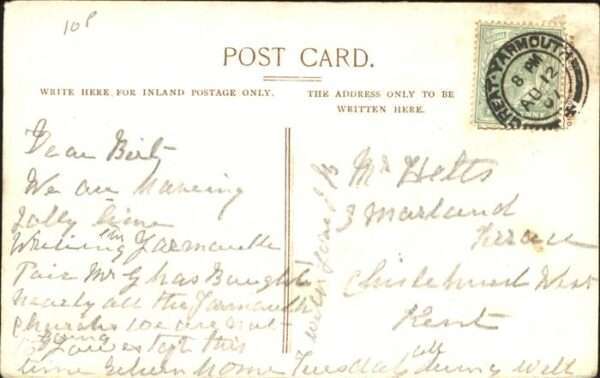 10p
POST CARD.
WRITE HERE, FOR INLAND POSTAGE ONLY.
THE ADDRESS ONLY TO BE
WRITTEN HERE.
GREAT-YARMOUTH
8 PM
AU 12
07
Dear Bert
We are having
Jolly time
Writing in Yarmouth
Mr G has Bought
nearly all the Yarmouth
we are not
going
Lowestoft this
time Return Home Tuesday all being well
with love
Mr Helts
3 Marland
Terrace
Chislehurst West
Kent